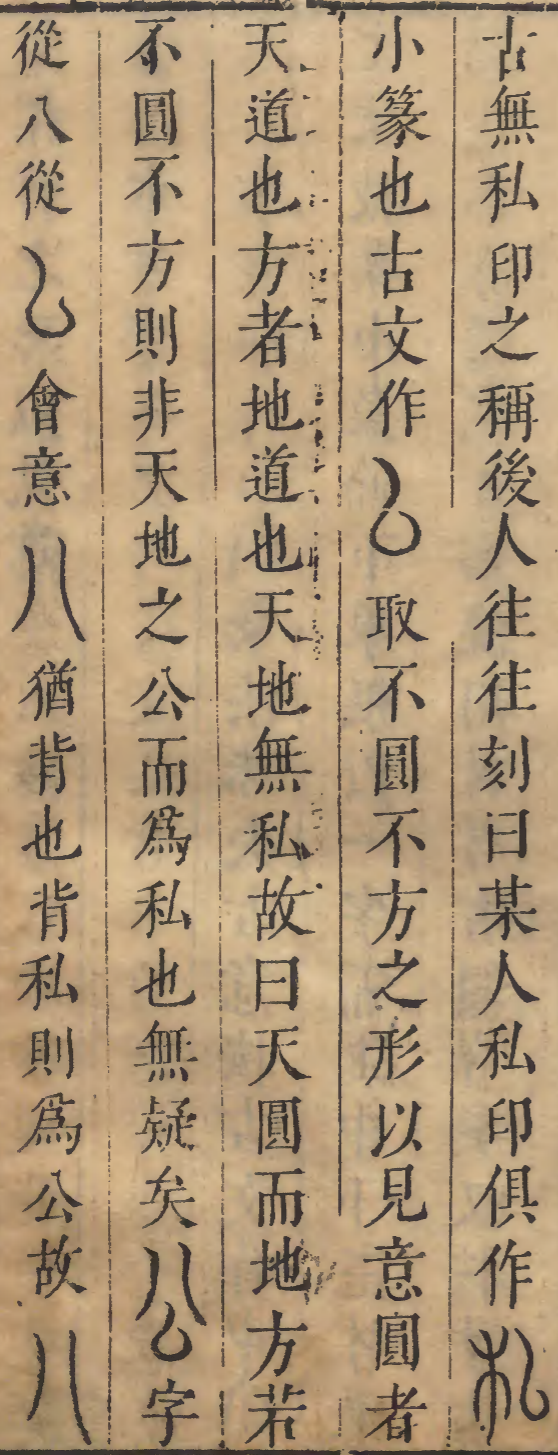 古無私印之稱後人往往刻曰某人私印俱作私
小篆也古文作厶取不圓不方之形以見意圓者
天道也方者地道也天地無私故曰天圓而地方若
不圓不方則非天地之公而爲私也無疑矣公字
從八從厶會意八猶背也背私則爲公故八